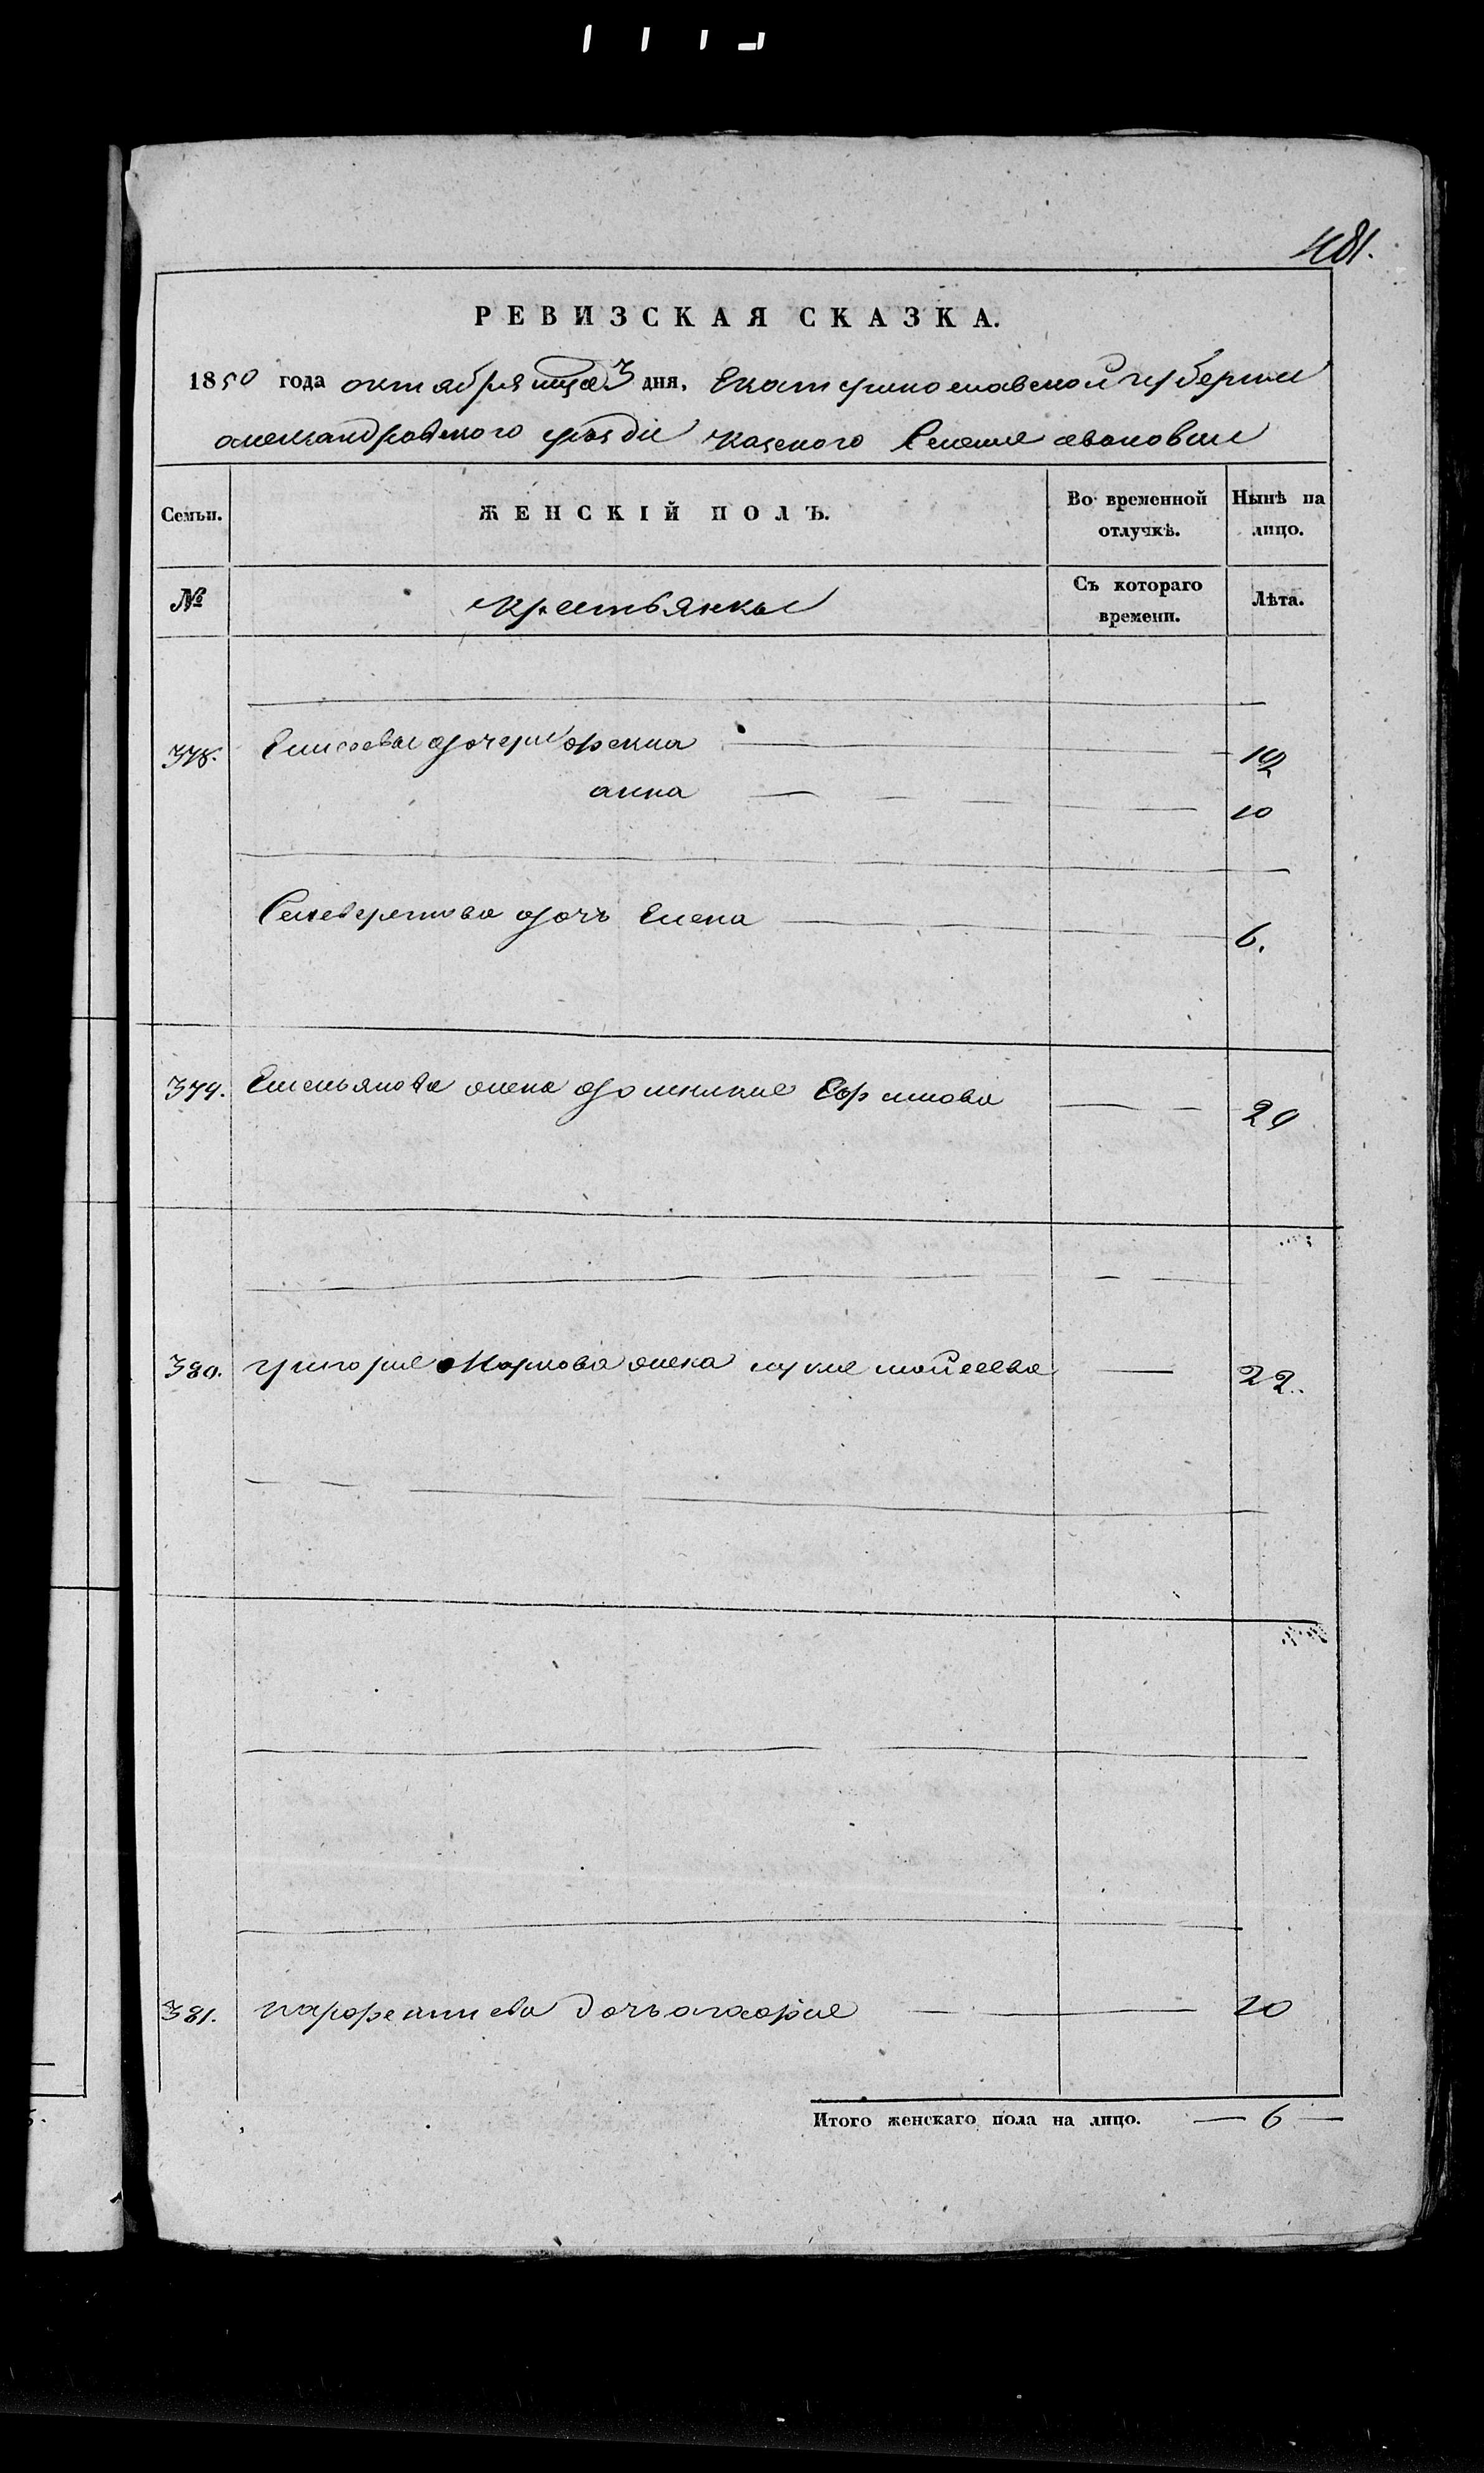 481.
РЕВИЗСКАЯ СКАЗКА.
1850 года октября мца 3 дня, Екатеринославской губернии
александровского уезда казеного Селения
Семьи. ЖЕНСКІЙ ПОЛЪ. Во временной отлучкѣ. Нынѣ на лицо.
№ крестьянки Съ котораго времени. Лѣта.
378. Елисеевы дочери 12
анна 10
дочь Елена 6.
379. Емельянова жена домникия Ефимова 29
380. григория Карпова жена мойсеева 22.
381. парфентиева дочь агафия 10
Итого женскаго пола на лицо. 6